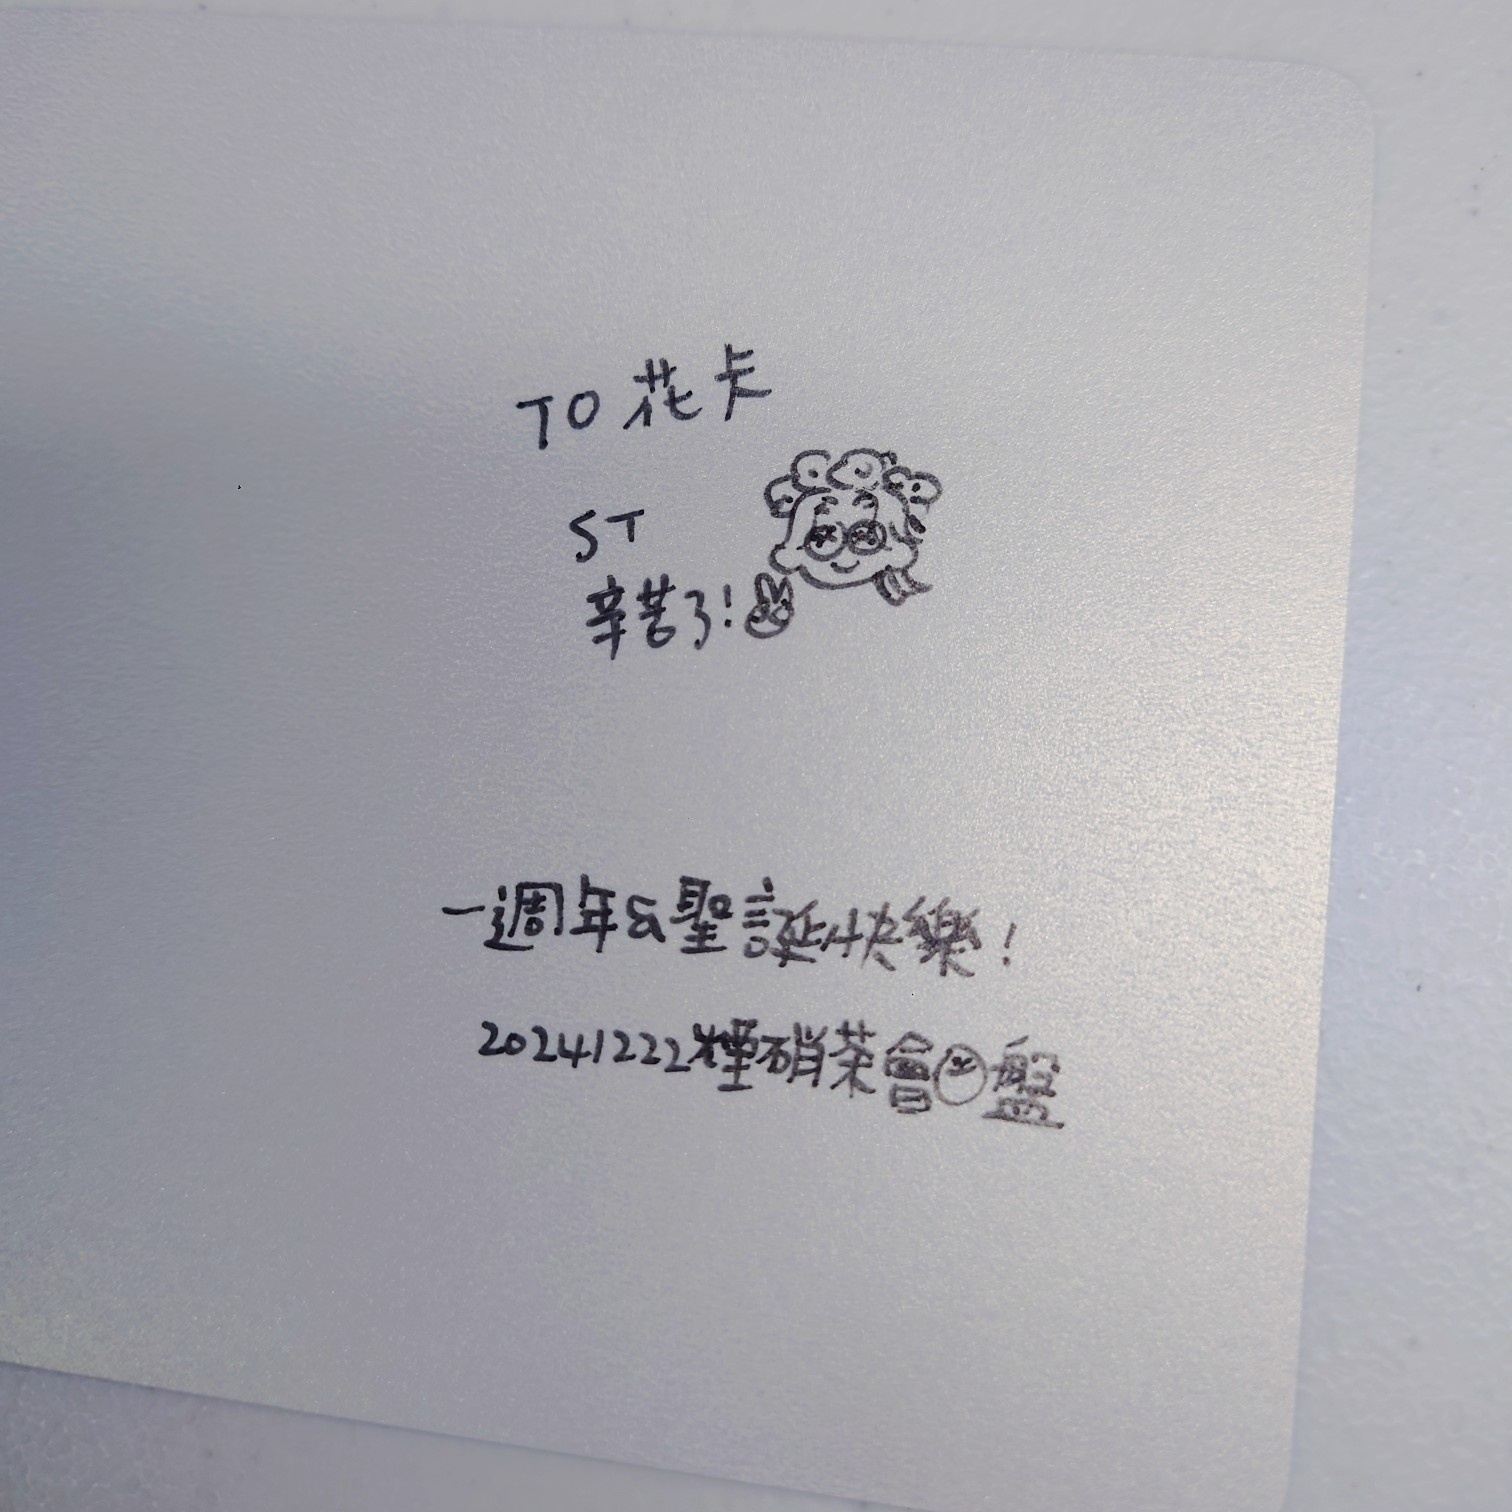 TO 花卡
ST
辛苦了!
一週年&聖誕快樂!
20241222煙硝茶會 盤